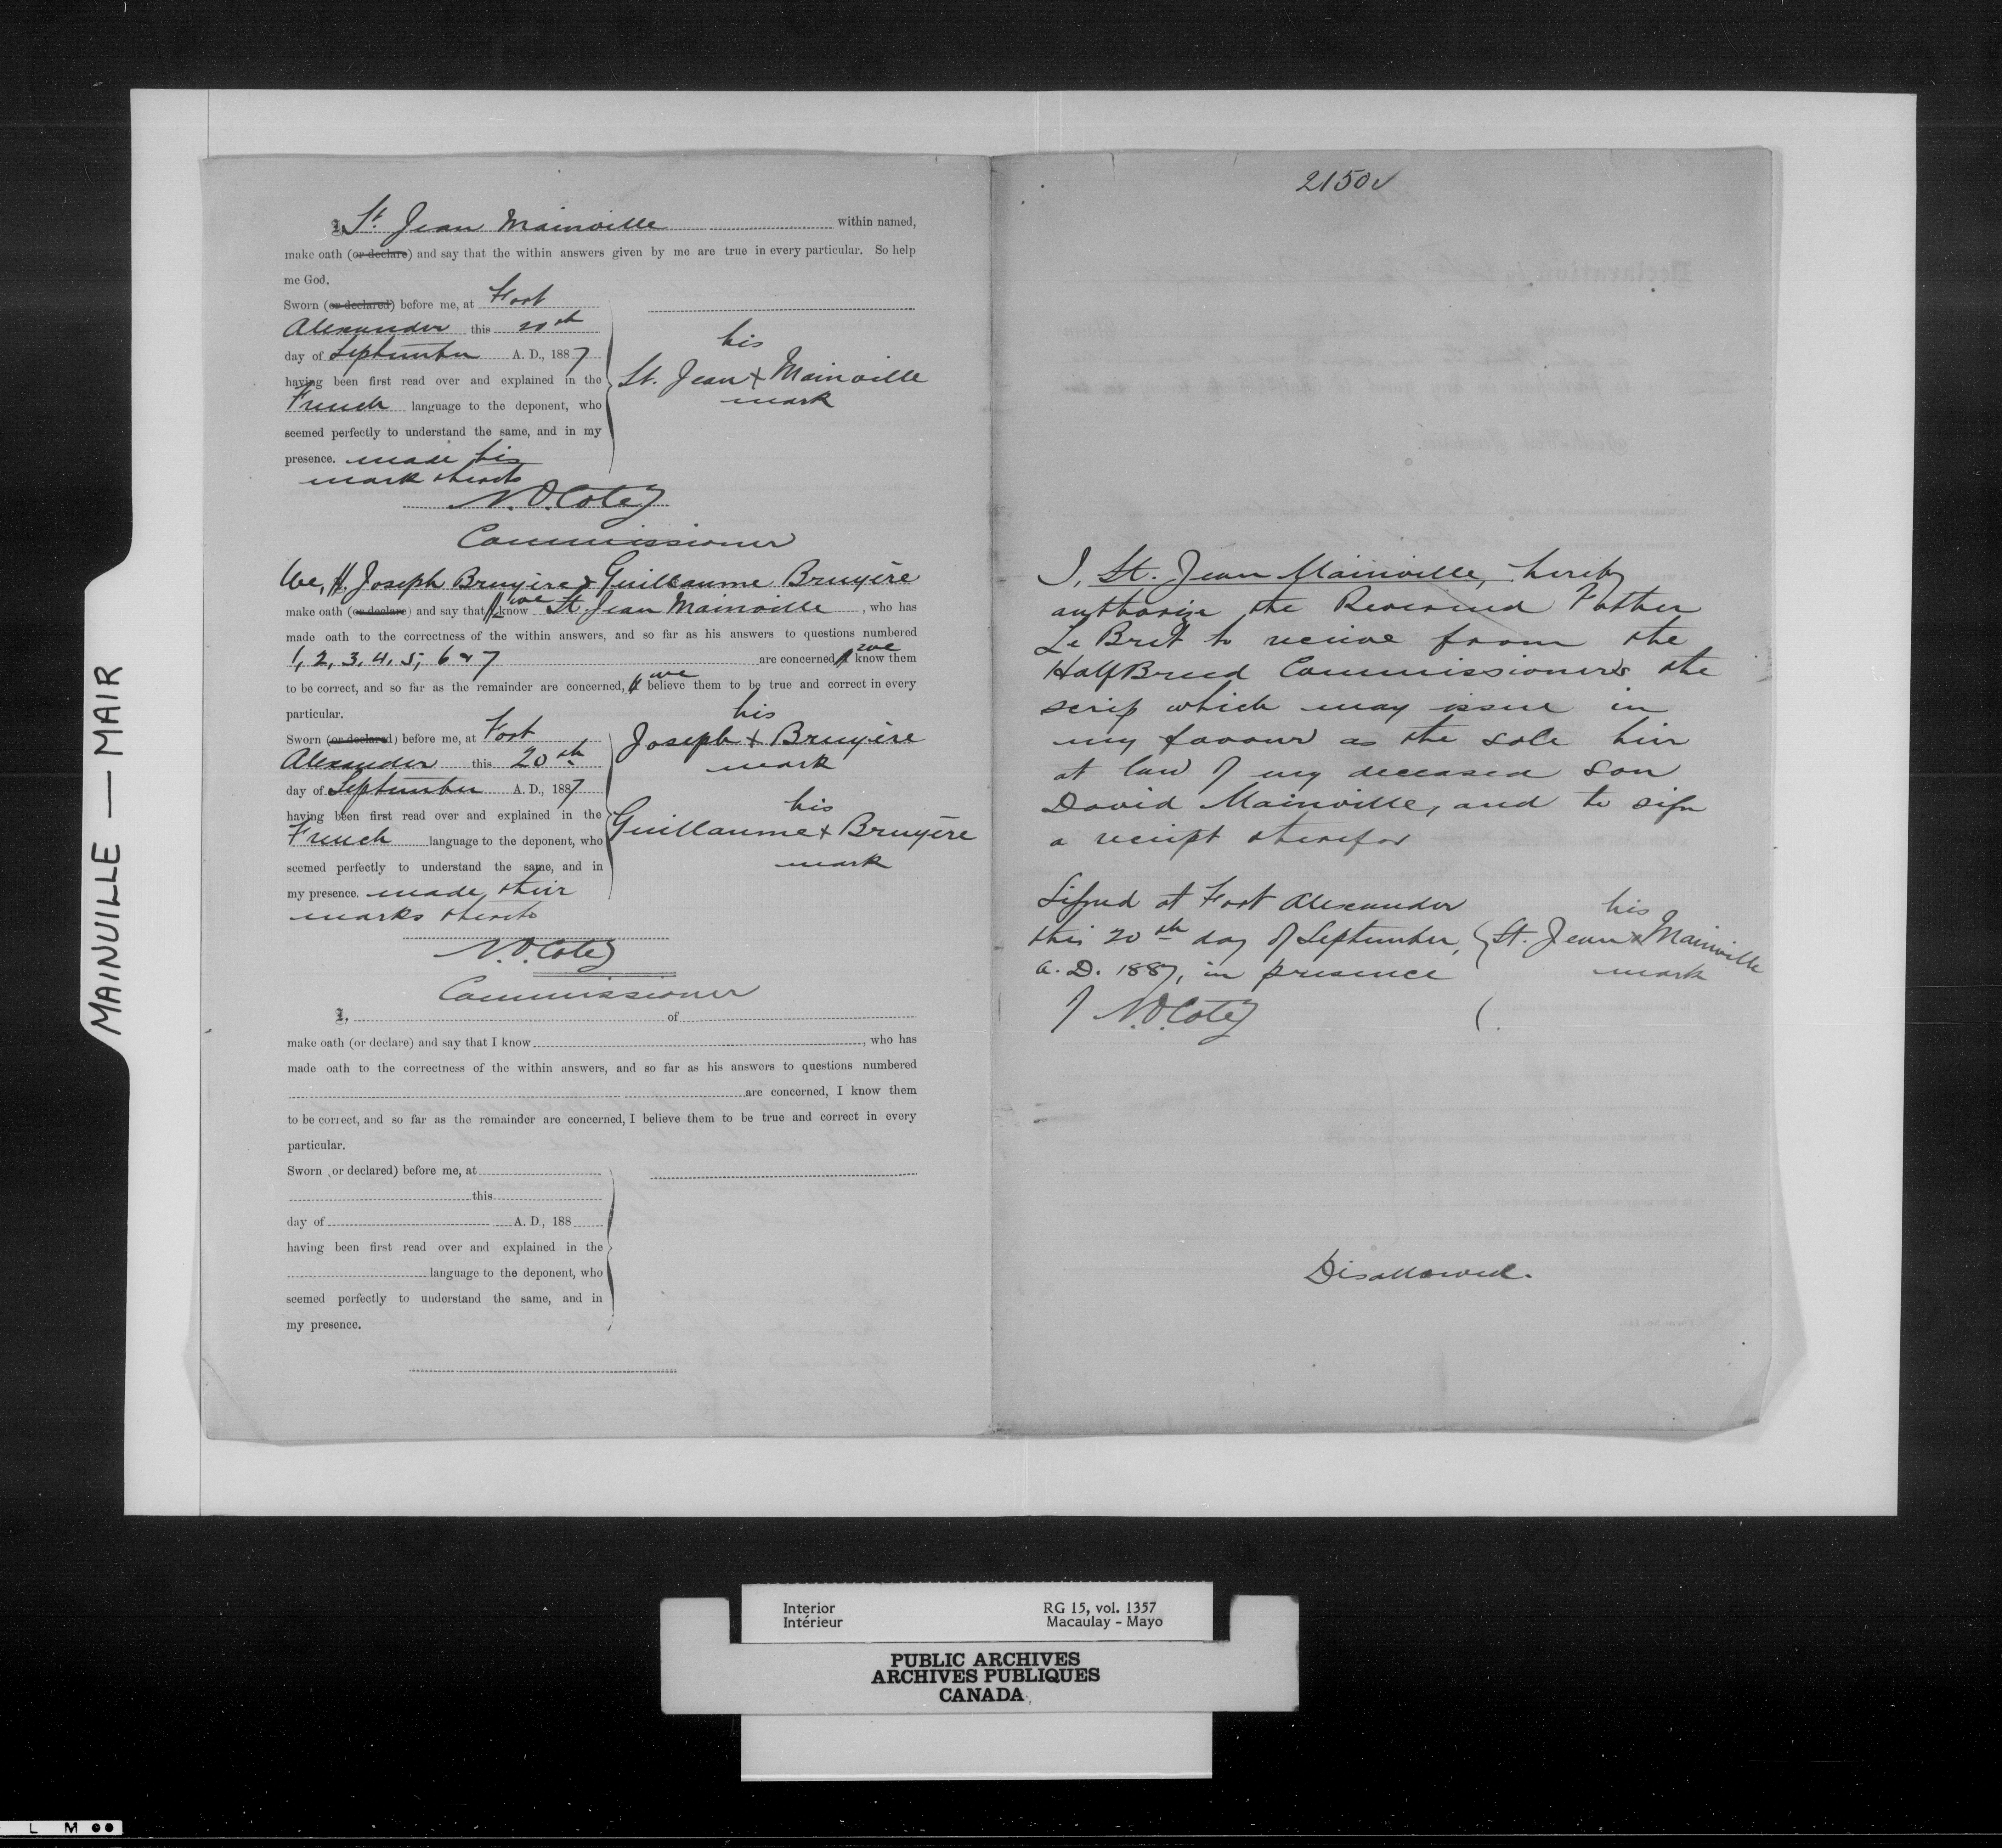 MAINVILLE — MAIR
I, St. Jean Mainville within named,
make oath (or declare) and say that the within answers given by me are true in every particular. So help
me God.
Sworn (or declared) before me, at Fort
Alexander this 20th
day of September A. D., 1887
having been first read over and explained in the
French language to the deponent, who
seemed perfectly to understand the same, and in my
presence. made his
mark thereto
his
St. Jean + Mainville
mark
N.O. Coté
Commissioner
We, Joseph Bruyère & Guillaume Bruyère
make oath (or declare) and say that I we know St. Jean Mainville, who has
made oath to the correctness of the within answers, and so far as his answers to questions numbered
1, 2, 3, 4, 5, 6 & 7 are concerned, I we know them
to be correct, and so far as the remainder are concerned, I we believe them to be true and correct in every
particular.
Sworn (or declared) before me, at Fort
Alexander this 20th
day of September A. D., 1887
having been first read over and explained in the
French language to the deponent, who
seemed perfectly to understand the same, and in
my presence. made their
marks thereto
his
Joseph + Bruyère
mark
his
Guillaume + Bruyère
mark
N.O. Coté
Commissioner
I, of
make oath (or declare) and say that I know , who has
made oath to the correctness of the within answers, and so far as his answers to questions numbered
are concerned, I know them
to be correct, and so far as the remainder are concerned, I believe them to be true and correct in every
particular.
Sworn (or declared) before me, at
this
day of A. D., 188
having been first read over and explained in the
language to the deponent, who
seemed perfectly to understand the same, and in
my presence.
2150
I, St. Jean Mainville, hereby
authorize the Reverend Father
Le Bret to receive from the
HalfBreed Commissioners the
scrip which may issue in
my favour as the sole heir
at law of my deceased son
David Mainville, and to sign
a receipt therefor
Signed at Fort Alexander
this 20th day of September,
A. D. 1887, in presence
of N.O. Coté
his
St. Jean x Mainville
mark
Disallowed.
Interior
Intérieur
RG 15, vol. 1357
Macaulay - Mayo
PUBLIC ARCHIVES
ARCHIVES PUBLIQUES
CANADA
L M